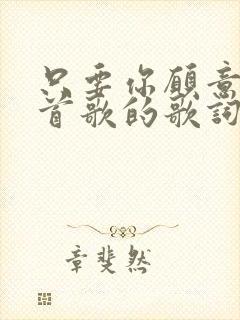 只要你願意
首歌的歌詞
章斐然